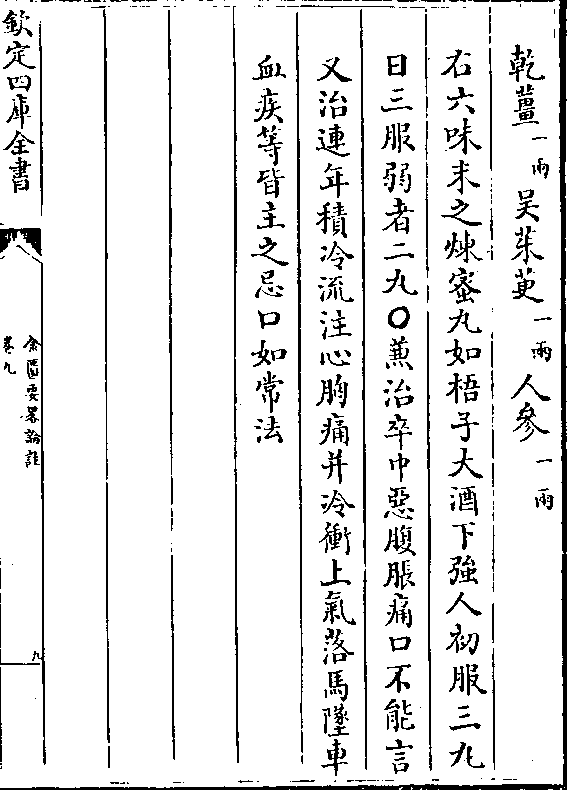 乾薑一兩 吳茱萸一兩 人參一兩
右六味末之煉蜜丸如梧子大酒下強人初服三丸
日三服弱者二丸〇蕪治卒中惡腹脹痛口不能言
又治連年積冷流注心胸痛并冷衝上氣落馬墜車
血疾等皆主之忌口如常法
欽定四庫全書
金匱要畧論註
卷九
九